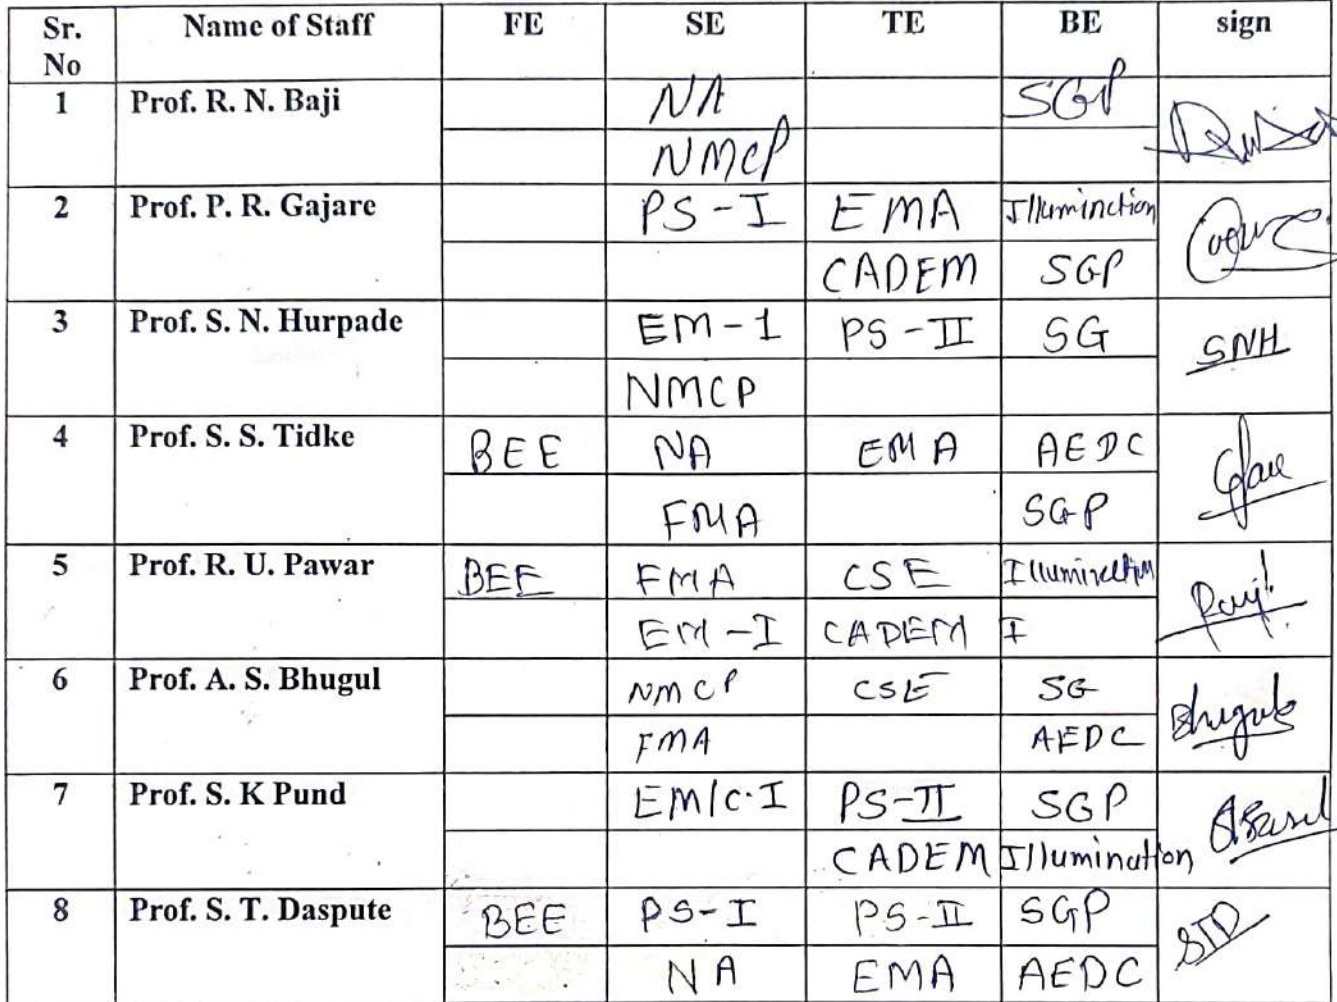 Sr. No Name of Staff FE SE TE BE sign
1 Prof. R. N. Baji NA SGP
NMCP
2 Prof. P. R. Gajare PS-I EMA Illuminction
CADEM SGP
3 Prof. S. N. Hurpade EM-1 PS-II SG SNH
NMCP
4 Prof. S. S. Tidke BEE NA EMA AEDC
FMA SGP
5 Prof. R. U. Pawar BEE FMA CSE
EM-I CADEM I
6 Prof. A. S. Bhugul NMCP CSE SG
FMA AEDC
7 Prof. S. K Pund EM/C-I PS-II SGP
CADEM Illumination
8 Prof. S. T. Daspute BEE PS-I PS-II SGP STD
NA EMA AEDC